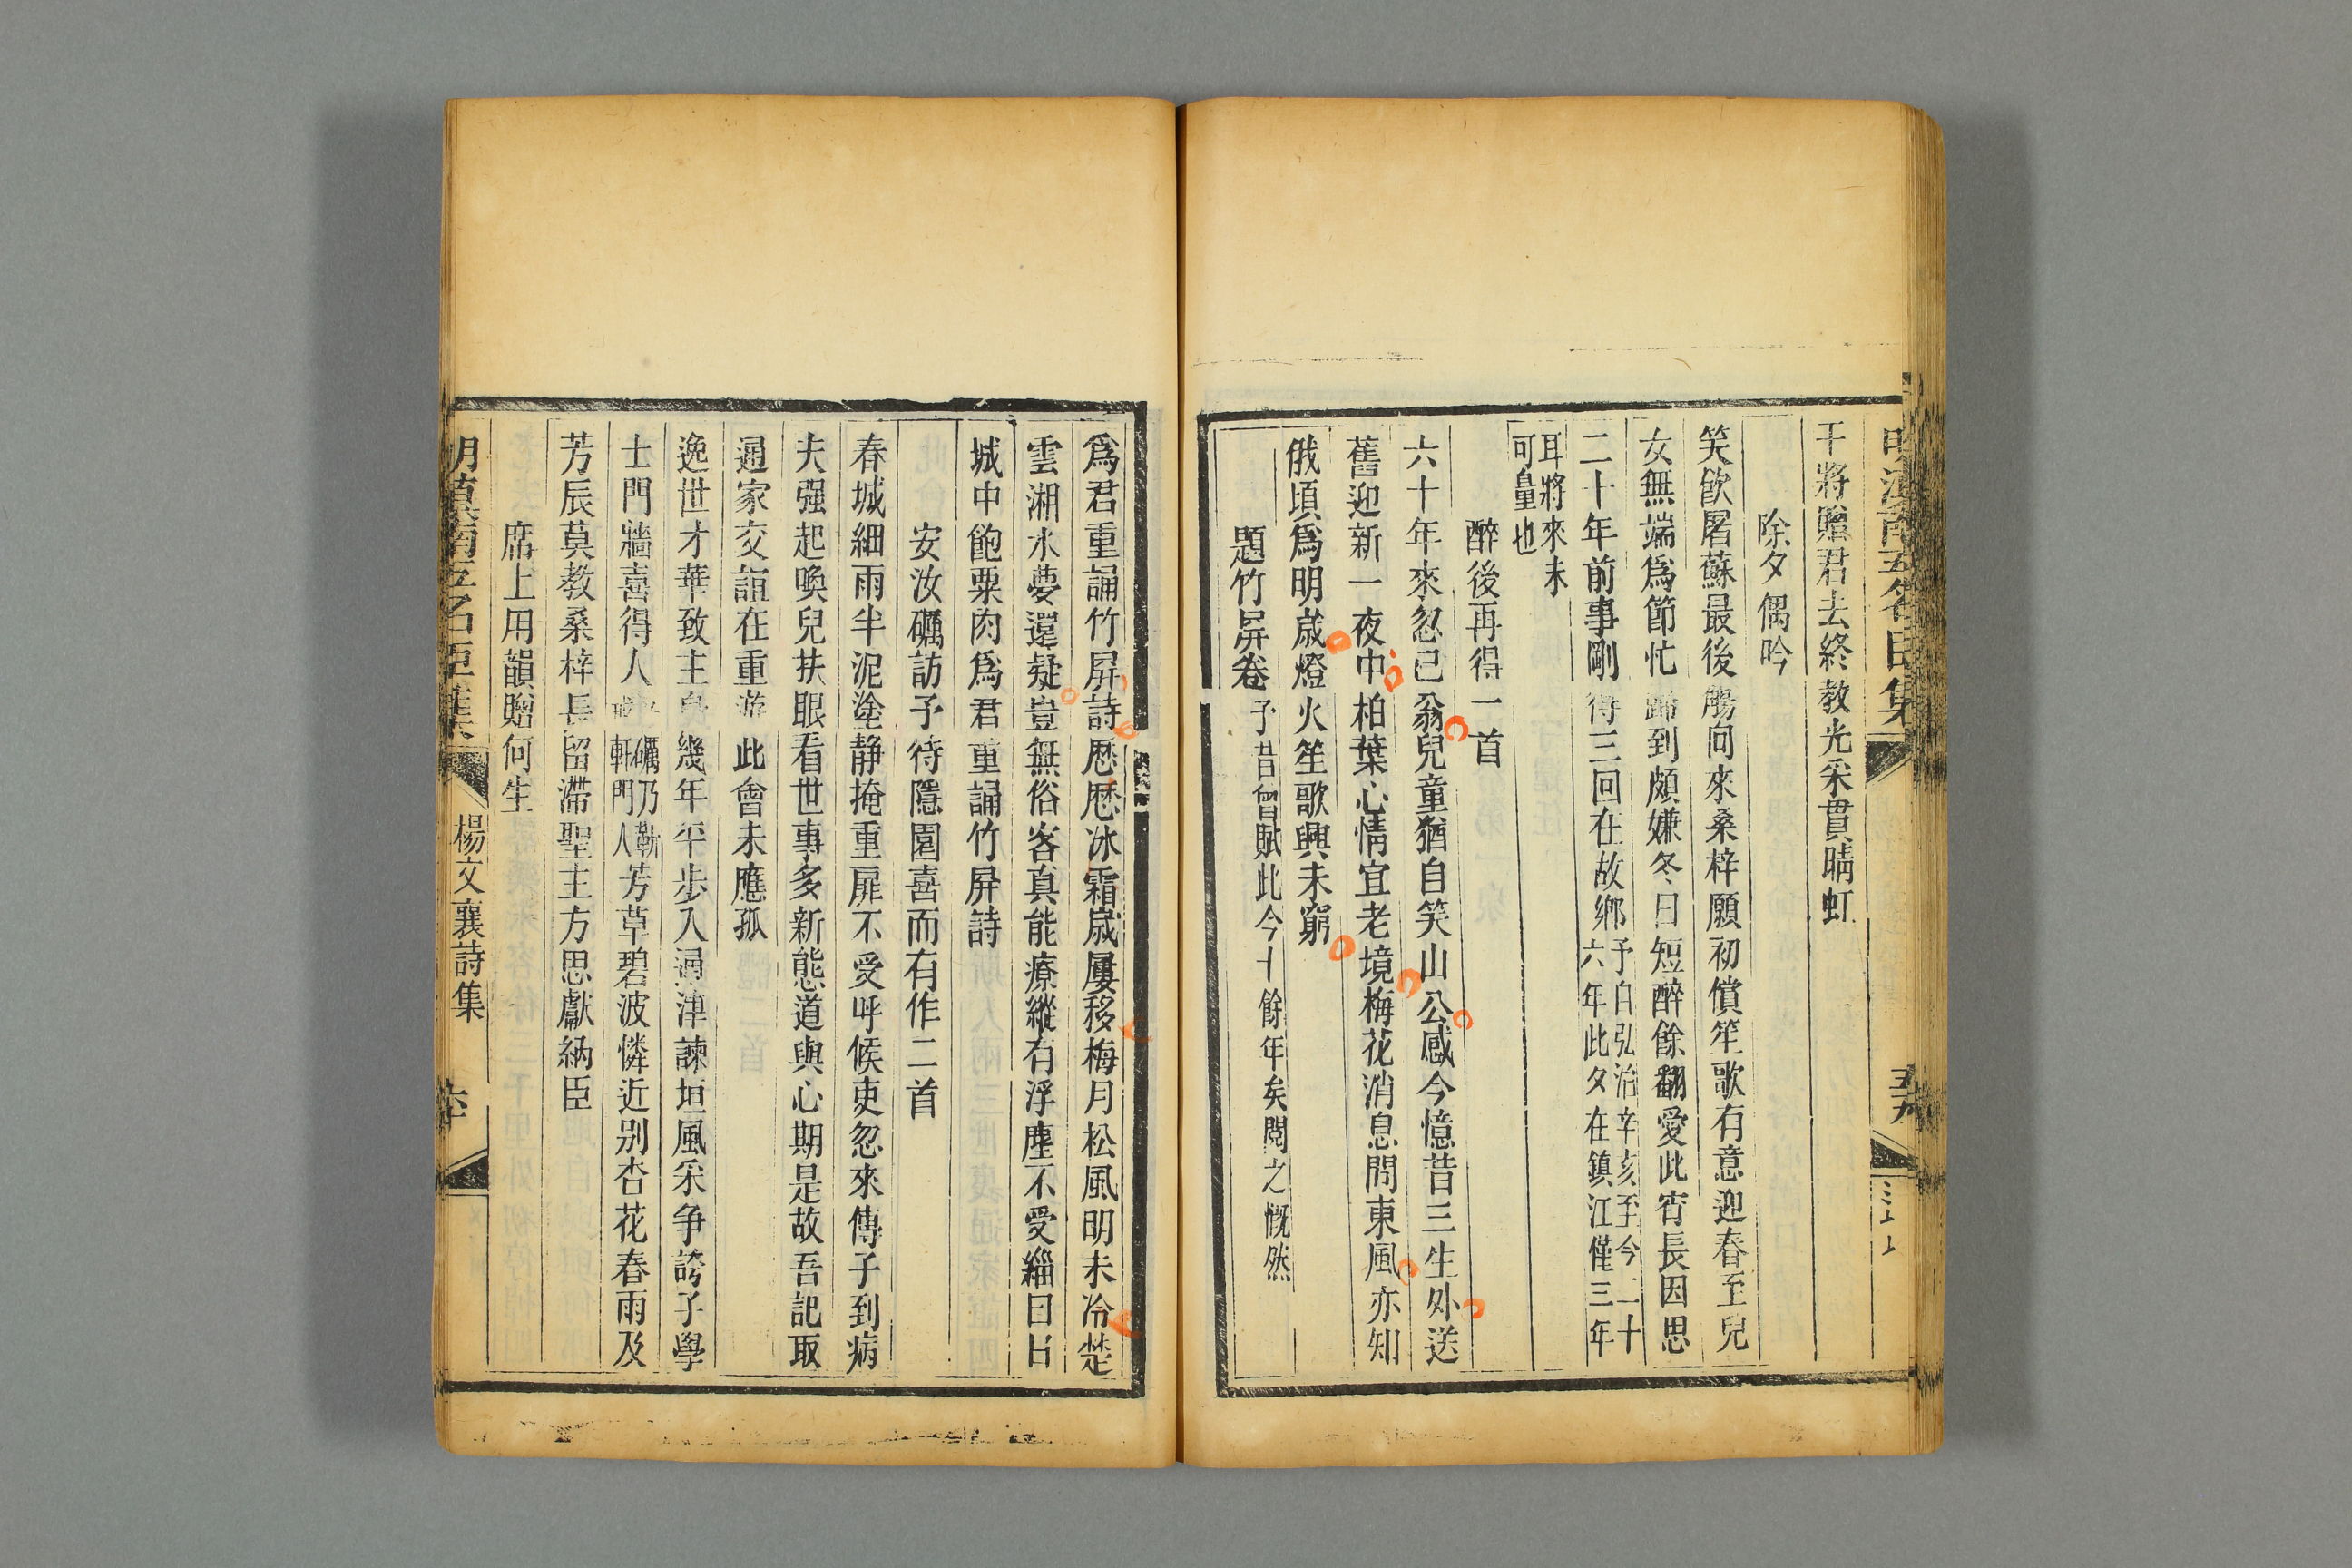 干將贈君去終教光采貫晴虹
除夕偶吟
笑飲屠蘇最後觴向來桑梓願初償笙歌有意迎春至兒
女無端爲節忙歸到頗嫌冬日短醉餘翻愛此宵長因思
二十年前事剛得三回在故鄉予自弘治辛亥至今二十
六年此夕在鎮江僅三年
耳將來未
可量也
醉後再得一首
六十年來忽已翁兒童猶自笑山公感今憶昔三生外送
舊迎新一夜中柏葉心情宜老境梅花消息問東風亦知
俄頃爲明歲燈火笙歌興未窮
題竹屏卷予昔曾賦此今十餘年矣閱之慨然
爲君重誦竹屏詩歷歷冰霜歲屢移梅月松風明未冷楚
雲湘水夢還疑豈無俗客真能療縱有浮塵不受緇日日
城中飽粟肉爲君重誦竹屏詩
安汝礪訪予待隱園喜而有作二首
春城細雨半泥塗静掩重扉不受呼候吏忽來傳子到病
夫强起喚兒扶眼看世事多新態道與心期是故吾記取
通家交誼在重游此會未應孤
逸世才華致主身幾年平步入通津諫垣風采争誇子學
士門牆喜得人礪乃靳
軒門人芳草碧波憐近别杏花春雨及
芳辰莫教桑梓長留滯聖主方思獻納臣
席上用韻贈何生
明滇南五名臣集 楊文襄詩集 六十